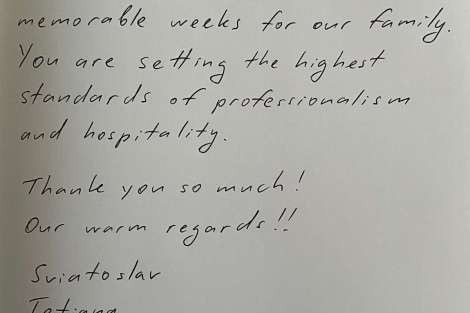 memorable weeks for our family.
You are setting the highest
standards of professionalism
and hospitality.
Thank you so much!
Our warm regards!!
Sviatoslav
Tatiana